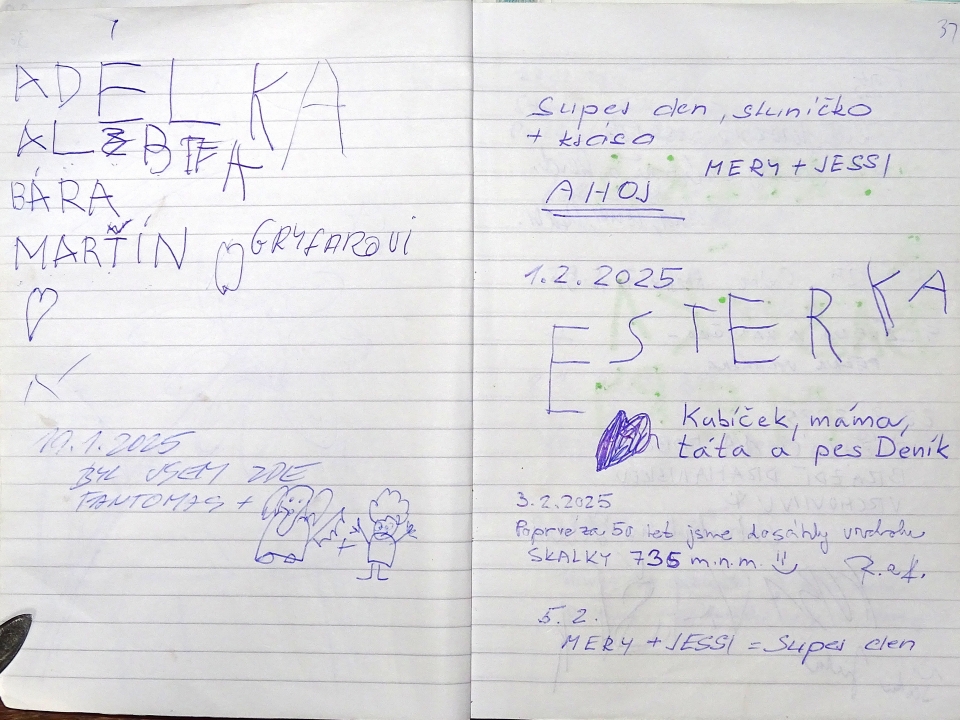 ADÉLKA
ALŽBĚTA
BÁRA
MARTÍN GRYFAROVI
19.1.2025
BYL JSEM ZDE
FANTOMAS +
+
37
Super den, sluníčko
+ krása
MERY + JESSI
AHOJ
1.2.2025
ESTERKA
Kubíček, máma,
táta a pes Deník
3.2.2025
Poprvé za 50 let jsme dosáhly vrcholu
SKALKY 735 m.n.m.
5.2.
MERY + JESSI = Super den